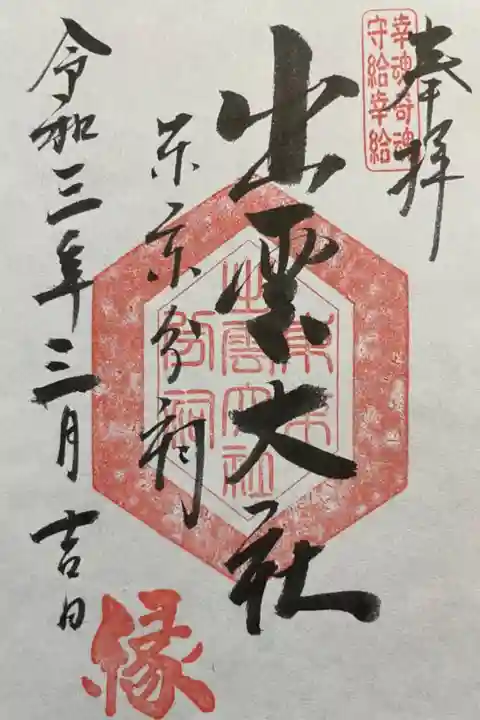 奉拝
幸魂奇魂
守給幸給
出雲大社
東京分祠
東京
出雲大社
分祠
令和三年三月吉日
縁